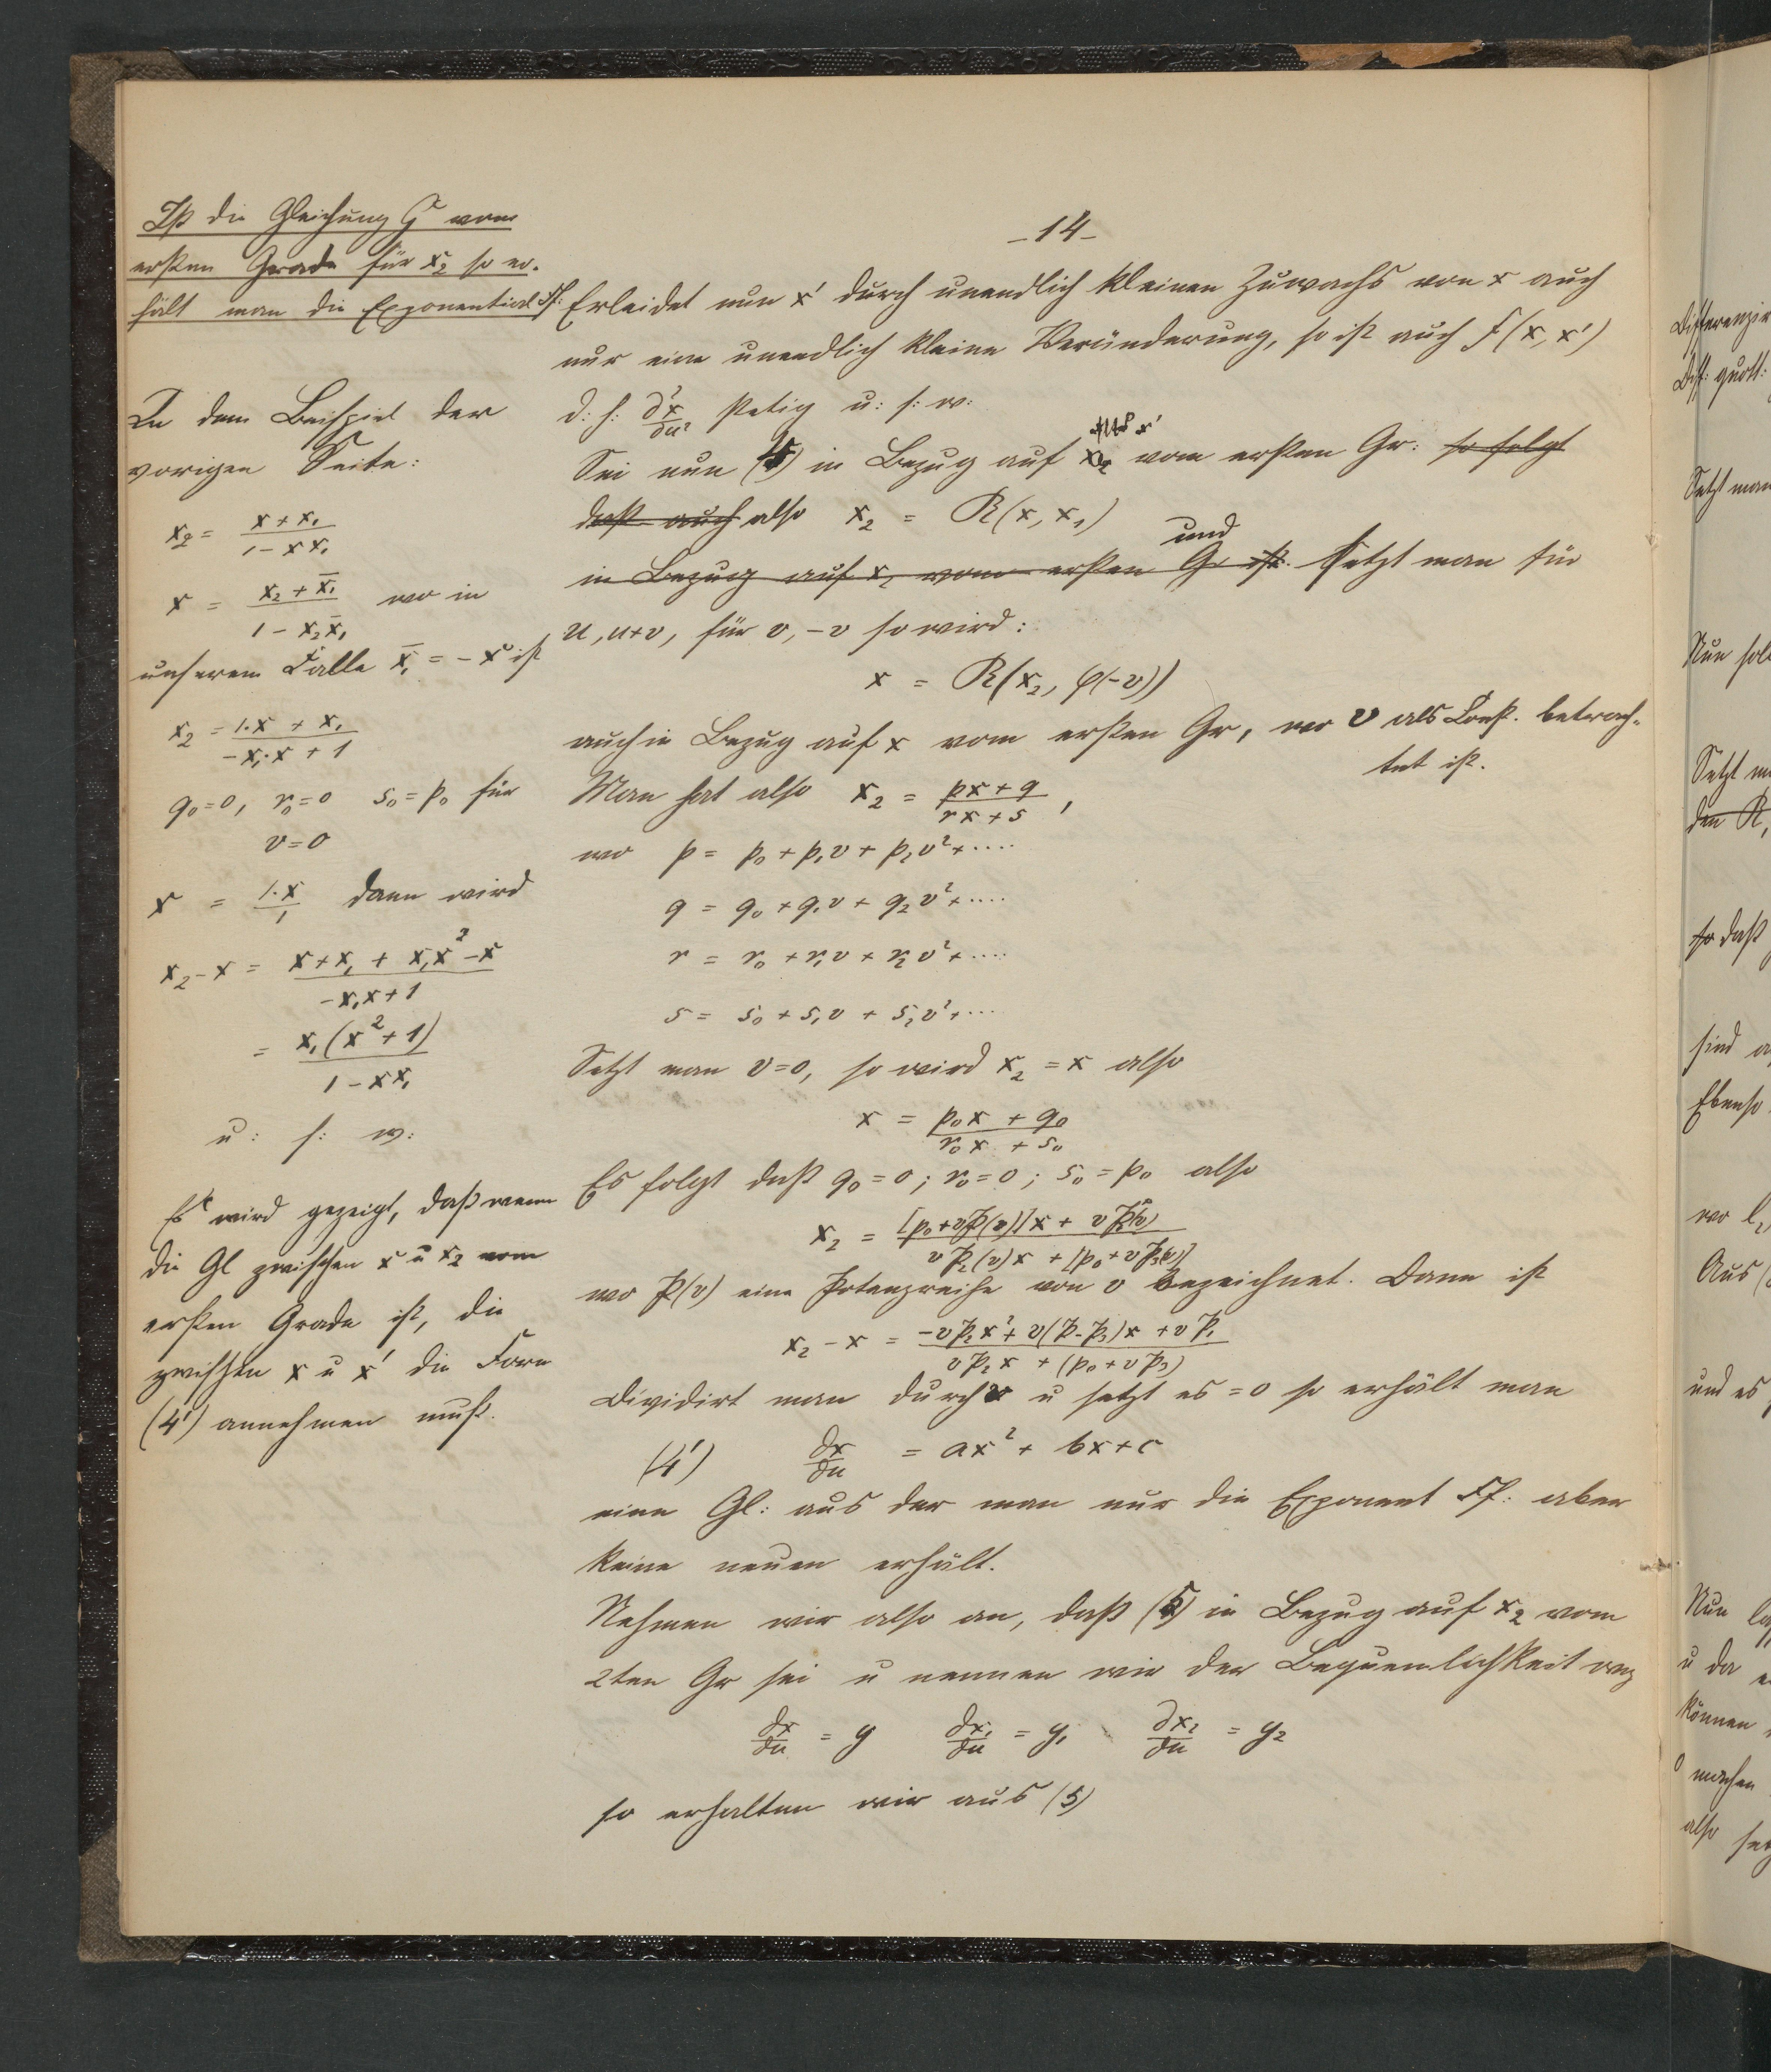 Ist die Gleichung G vom
ersten Grade für x₂ so er-
hält man die Exponential Ff:
In dem Beispiel der
vorigen Seite:
x₂ = (x + x₁)/(1 - x x₁)
x = (x₂ + x̄₁)/(1 - x₂x̄₁) wo in
unserem Falle x̄₁ = - x ist
x₂ = (1.x + x₁)/(-x₁.x + 1)
q₀=0, r₀=0 s₀=p₀ für
v=0
x = 1.x/1 dann wird
x₂ - x = (x + x₁ + x₁x² - x)/(-x₁x + 1)
= x₁(x² + 1)/(1 - xx₁)
u: s: w:
Es wird gezeigt, daß wenn
die Gl zwischen x u x₂ vom
ersten Grade ist, die
zwischen x u x' die Form
(4') annehmen muß.
- 14 -
Erleidet nun x' durch unendlich kleinen Zuwachs von x auch
nur eine unendlich kleine Veränderung, so ist auch f(x, x')
d: h: d²x/du² stetig u: s: w:
Sei nun (5) in Bezug auf x₂ vom ersten Gr: so folgt
daß auch also x₂ = R(x, x₁)
und
in Bezug auf x₂ vom ersten Gr ist. Setzt man für
u, u+v, für v, -v so wird:
x = R(x₂, φ(-v))
auch in Bezug auf x vom ersten Gr, wo v als Const. betrach-
tet ist.
Man hat also x₂ = (px + q)/(rx + s),
wo p = p₀ + p₁v + p₂v² + ....
q = q₀ + q₁v + q₂v² + ....
r = r₀ + r₁v + r₂v² + ....
s = s₀ + s₁v + s₂v² + ...
Setzt man v=0, so wird x₂ = x also
x = (p₀x + q₀)/(r₀x + s₀)
Es folgt daß q₀=0; r₀=0; s₀=p₀ also
x₂ = ([p₀+v𝔓(v)]x + v𝔓₁(v))/(v𝔓₂(v)x + [p₀+v𝔓₃(v)])
wo 𝔓(v) eine Potenzreihe von v bezeichnet. Dann ist
x₂ - x = (-v𝔓₂x² + v(𝔓-𝔓₃)x + v𝔓₁)/(v𝔓₂x + (p₀ + v𝔓₃))
Dividirt man durch v u setzt es = 0 so erhält man
(4') dx/du = ax² + bx + c
eine Gl: aus der man nur die Exponent Ff: aber
keine neuen erhält.
Nehmen wir also an, daß (5) in Bezug auf x₂ vom
2ten Gr sei u nennen wir der Bequemlichkeit weg
dx/du = y dx₁/du = y₁ dx₂/du = y₂
so erhalten wir aus (5)
Setzt man
Nun
so daß
sind
Ebenso
wo
Aus
und es
Nun
u da
können
machen
also